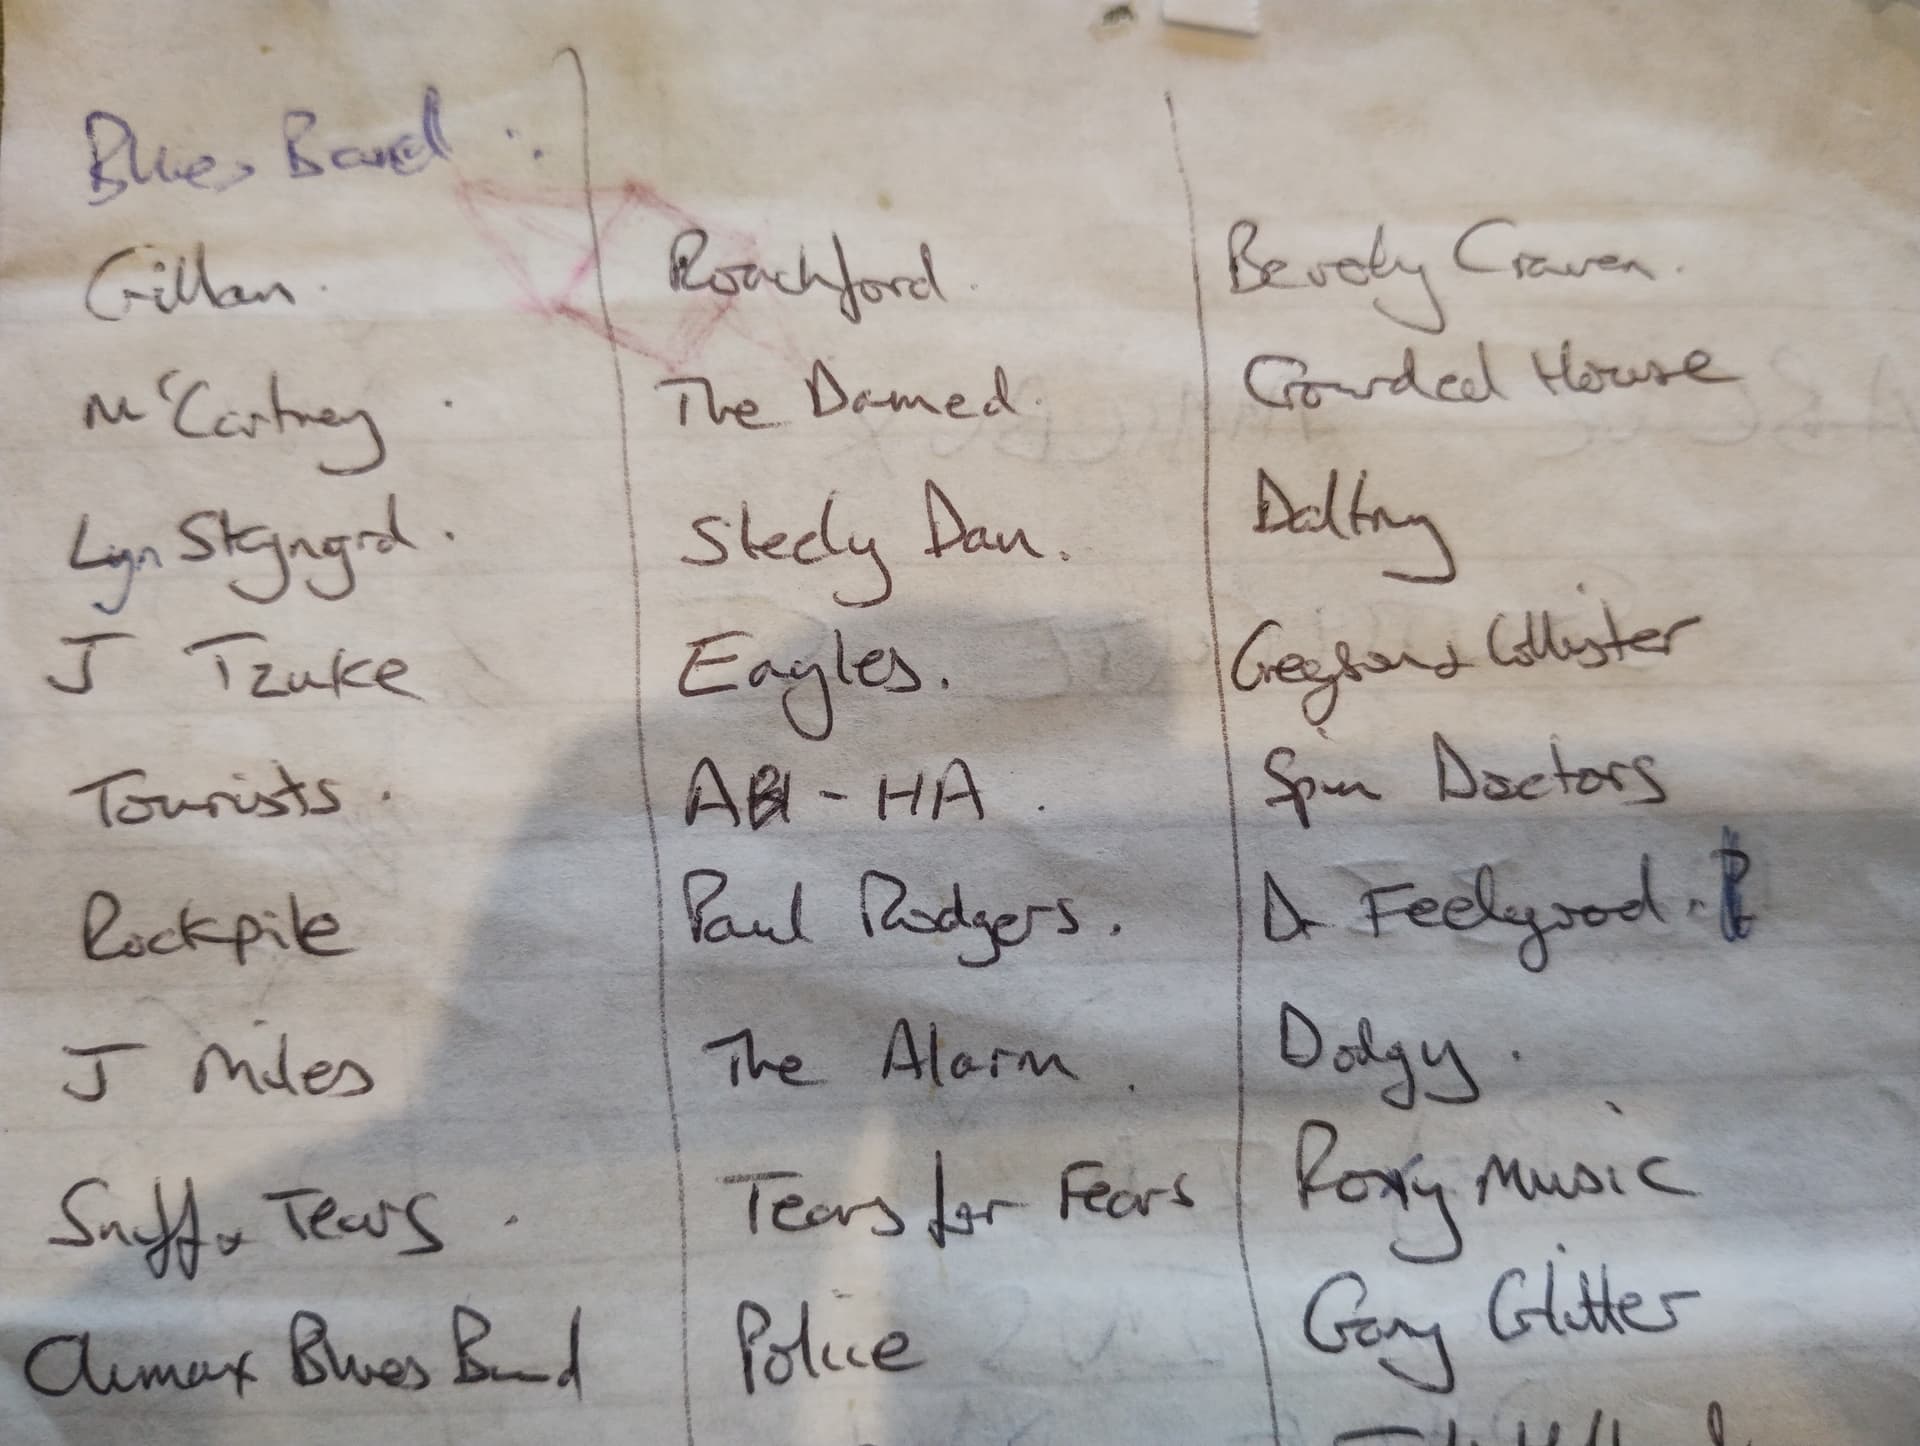 Blues Band
Gillan.
McCartney
Lyn Skynyrd.
J Tzuke
Tourists.
Rockpile
J Miles
Sniff & Tears.
Climax Blues Band
Roachford.
The Damed.
Steely Dan.
Eagles.
AH-HA.
Paul Rodgers.
The Alarm.
Tears for Fears
Police
Beverly Craven.
Crowded House
Daltrey
Gregson & Collister
Spin Doctors
Dr Feelgood.
Dodgy.
Roxy Music
Gary Glitter